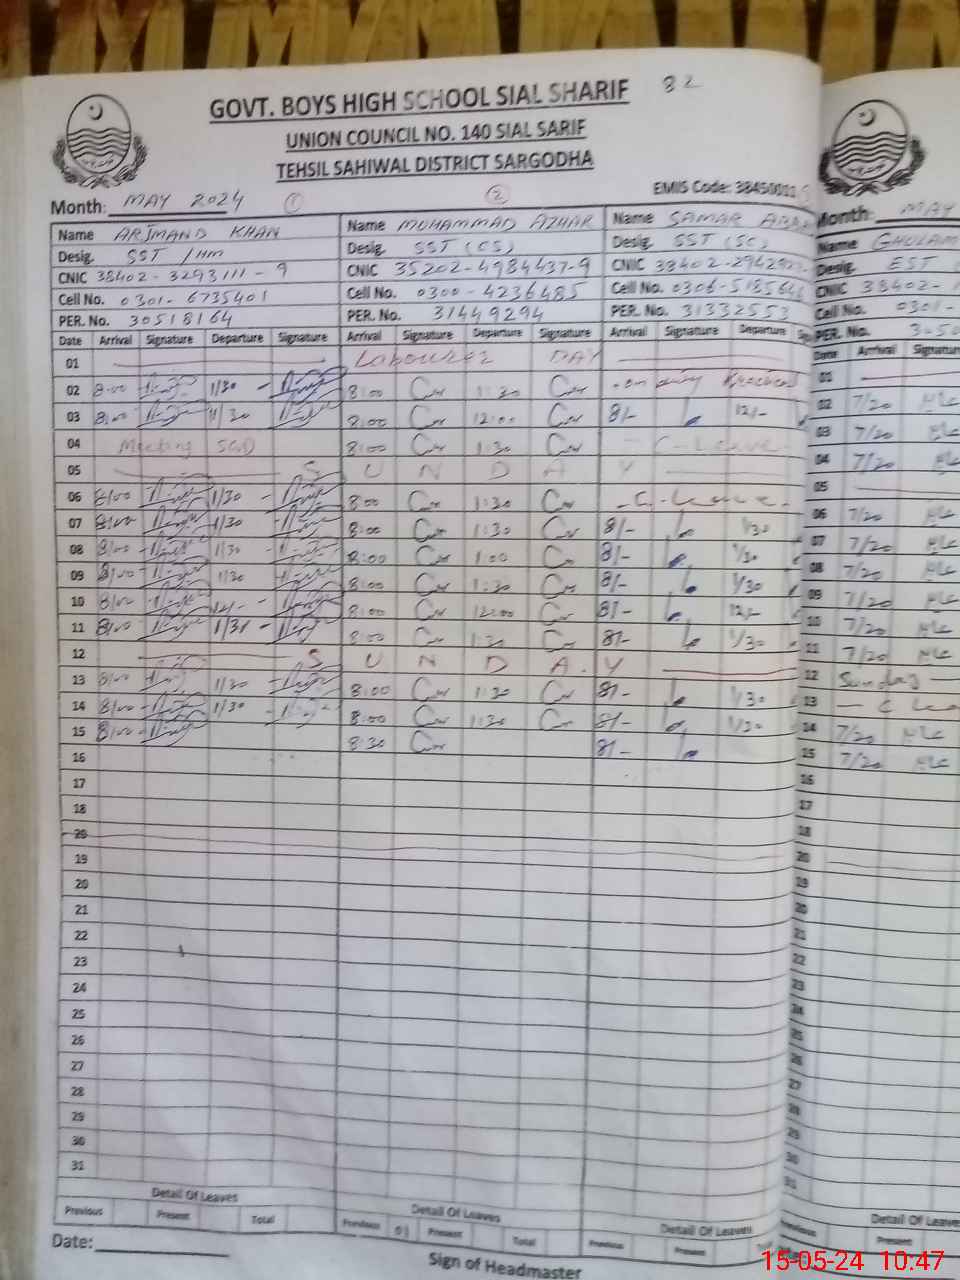 GOVT. BOYS HIGH SCHOOL SIAL SHARIF 82
UNION COUNCIL NO. 140 SIAL SARIF
TEHSIL SAHIWAL DISTRICT SARGODHA
EMIS Code: 38450011
Month: MAY 2024 1 2
Name ARJMAND KHAN Name MUHAMMAD AZHAR Name SAMAR
Desig. SST /HM Desig. SST (CS) Desig. SST (SC)
CNIC 38402-3293111-9 CNIC 35202-4984437-9 CNIC 38402-
Cell No. 0301-6735401 Cell No. 0300-4236485 Cell No. 0306-
PER. No. 30518164 PER. No. 31449294 PER. No. 31332553
Date Arrival Signature Departure Signature Arrival Signature Departure Signature Arrival Signature Departure
01 Labourer DAY
02 8:00 1/30 8:00 1:30 on duty Practical
03 8:00 1/30 8:00 12:00 8/- 12/-
04 Meeting SGD 8:00 1:30 C-Leave
05 S U N D A Y
06 8/00 1/30 8:00 1:30 C-Leave
07 8/00 1/30 8:00 1:30 8/- 1/30
08 8/00 1/30 8:00 1:00 8/- 1/30
09 8/00 1/30 8:00 1:30 8/- 1/30
10 8/00 12/- 8:00 12:00 8/- 12/-
11 8/00 8:00 1:30 8/- 1/30
12 S U N D A Y
13 8/00 1/30 8:00 1:30 8/- 1/30
14 8/00 1/30 8:00 1:30 8/- 1/30
15 8/00 8:30 8/-
16
17
18
19
20
21
22
23
24
25
26
27
28
29
30
31
Detail Of Leaves Detail Of Leaves Detail Of Leaves
Previous Present Total Previous 01 Present Total Previous Present
Date:
Sign of Headmaster
Month: MAY
Name GHULAM
Desig. EST
CNIC 38402-
Cell No. 0301-
PER. No.
Date Arrival
01
02 7/20
03 7/20
04 7/20
05
06 7/20
07 7/20
08 7/20
09 7/20
10 7/20
11 7/20
12 Sunday
13
14 7/20
15 7/20
16
17
18
19
20
21
22
23
24
25
26
27
28
29
30
31
Detail Of Leave
Present
15-05-24 10:47